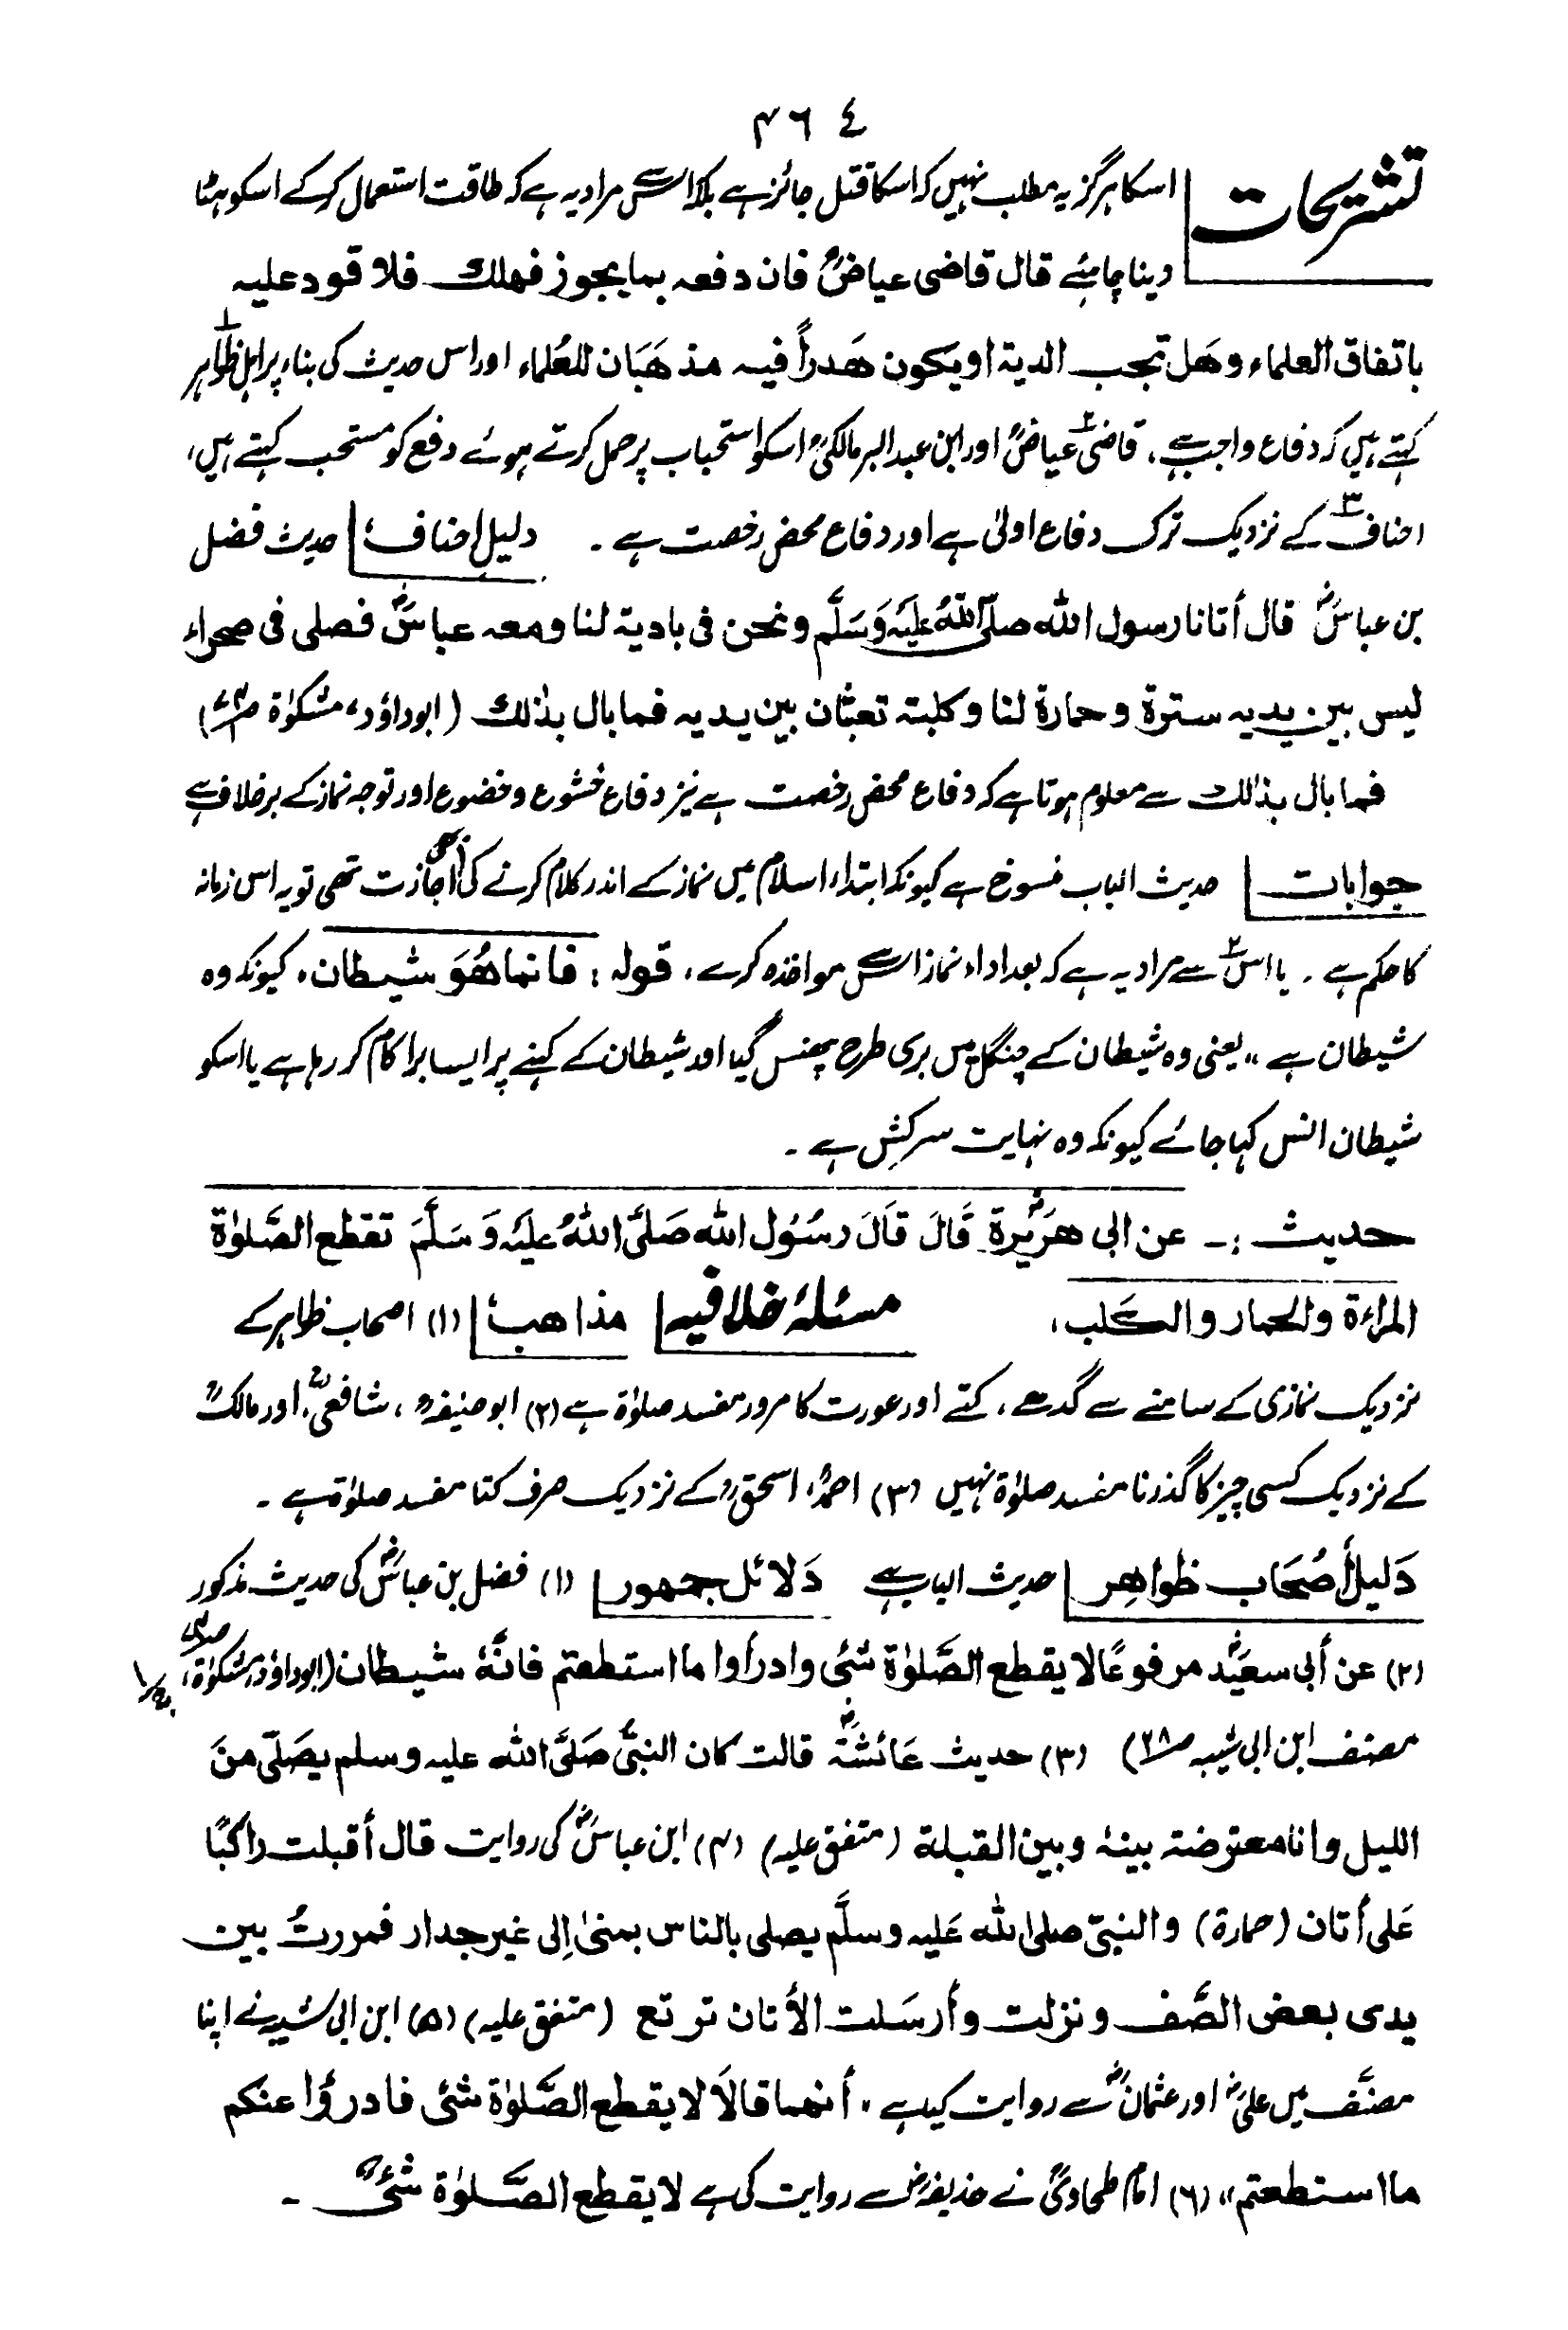 ٤٦٤
تشریحات اسکا ہرگز یہ مطلب نہیں کہ اسکا قتل جائز ہے بلکہ اس سے مراد یہ ہے کہ طاقت استعمال کرکے اسکو ہٹا
دینا چاہئے قال قاضی عیاضؒ فان دفعہ بما یجوز فھلك فلا قود علیہ
باتفاق العلماء وھَل تجب الدیۃ او یکون ھَدراً فیہ مذھَبَان للعُلماء اور اس حدیث کی بناء پر ۱ اہل ظواہر
کہتے ہیں کہ دفاع واجب ہے، ۲ قاضی عیاضؒ اور ابن عبدالبر مالکیؒ اسکو استحباب پر حمل کرتے ہوئے دفع کو مستحب کہتے ہیں،
۳ احناف کے نزدیک ترک دفاع اولیٰ ہے اور دفاع محض رخصت ہے ۔ دلیل احناف: حدیث فضل
بن عباسؓ قال أتانا رسول اللہ صلّی اللہُ علیہِ وَسَلَّم ونحن فی بادیۃ لنا ومعہ عباسؓ فصلی فی صحراء
لیس بین یدیہ سترۃ وحمارۃ لنا وکلبتہ تعبثان بین یدیہ فما بال بذٰلك (ابوداؤد، مشکوٰۃ ص۷۴)
فما بال بذٰلك سے معلوم ہوتا ہے کہ دفاع محض رخصت ہے نیز دفاع خشوع وخضوع اور توجہ نماز کے برخلاف ہے
جوابات حدیث الباب منسوخ ہے کیونکہ ابتداء اسلام میں نماز کے اندر کلام کرنے کی اجازت تھی تو یہ اس زمانہ
کا حکم ہے ۔ ۲ یا اس سے مراد یہ ہے کہ بعد اداء نماز اس سے مواخذہ کرے، قولہ : فانما ھُوَ شیطان، کیونکہ وہ
شیطان ہے ،، یعنی وہ شیطان کے چنگل میں بری طرح پھنس گیا اور شیطان کے کہنے پر ایسا برا کام کر رہا ہے یا اسکو
شیطان انس کہا جائے کیونکہ وہ نہایت سرکش ہے ۔
حدیث :۔ عن ابی ھرَیرۃؓ قَالَ قَالَ رسُوُل اللہ صَلَّی اللہُ علیَہِ وَسَلَّمَ تقطع الصَّلوٰۃ
المراءۃ والحمار والکَلب، مسئلۂ خلافیہ مذاھب: (۱) اصحاب ظواہر کے
نزدیک نمازی کے سامنے سے گدھے، کتے اور عورت کا مرور مفسد صلوٰۃ ہے (۲) ابوحنیفہؒ ، شافعیؒ، اور مالکؒ
کے نزدیک کسی چیز کا گذرنا مفسد صلوٰۃ نہیں (۳) احمدؒ، اسحقؒ کے نزدیک صرف کتا مفسد صلوٰۃ ہے ۔
دَلیل أصُحَاب ظواھِر حدیث الباب ہے دَلائل جمھور (۱) فضل بن عباسؓ کی حدیث مذکور
(۲) عن أبی سعیدؓ مرفوعًا لا یقطع الصَّلوٰۃ شئ وادرأوا ما استطعتم فانَّہٗ شیطان (ابوداؤد، مشکوٰۃ،
مصنف ابن ابی شیبہ ص۲۸) (۳) حدیث عَائشۃؓ قالت کان النبیُّ صَلَّی اللہ علیہ وسلم یصَلّی منَ
اللیل وانا معترضۃ بینہٗ وبین القبلۃ (متفق علیہ) (۴) ابن عباسؓ کی روایت قال أقبلت راکبًا
عَلی أتان (حمارۃ) والنبیّ صلی اللہ عَلیہ وسلَّم یصلی بالناس بمنیٰ اِلی غیر جدار فمررتُ بین
یدی بعض الصَّف ونزلت وأرسَلت الأتان ترتع (متفق علیہ) (۵) ابن ابی شیبہ نے اپنا
مصنَّف میں علیؓ اور عثمانؓ سے روایت کیہے ، أنھما قالاَ لا یقطع الصَّلوٰۃ شئ فادرؤا عنکم
ما استطعتم،، (۶) امام طحاویؒ نے حذیفہؓ سے روایت کی ہے لا یقطع الصَّلوٰۃ شئ ۔